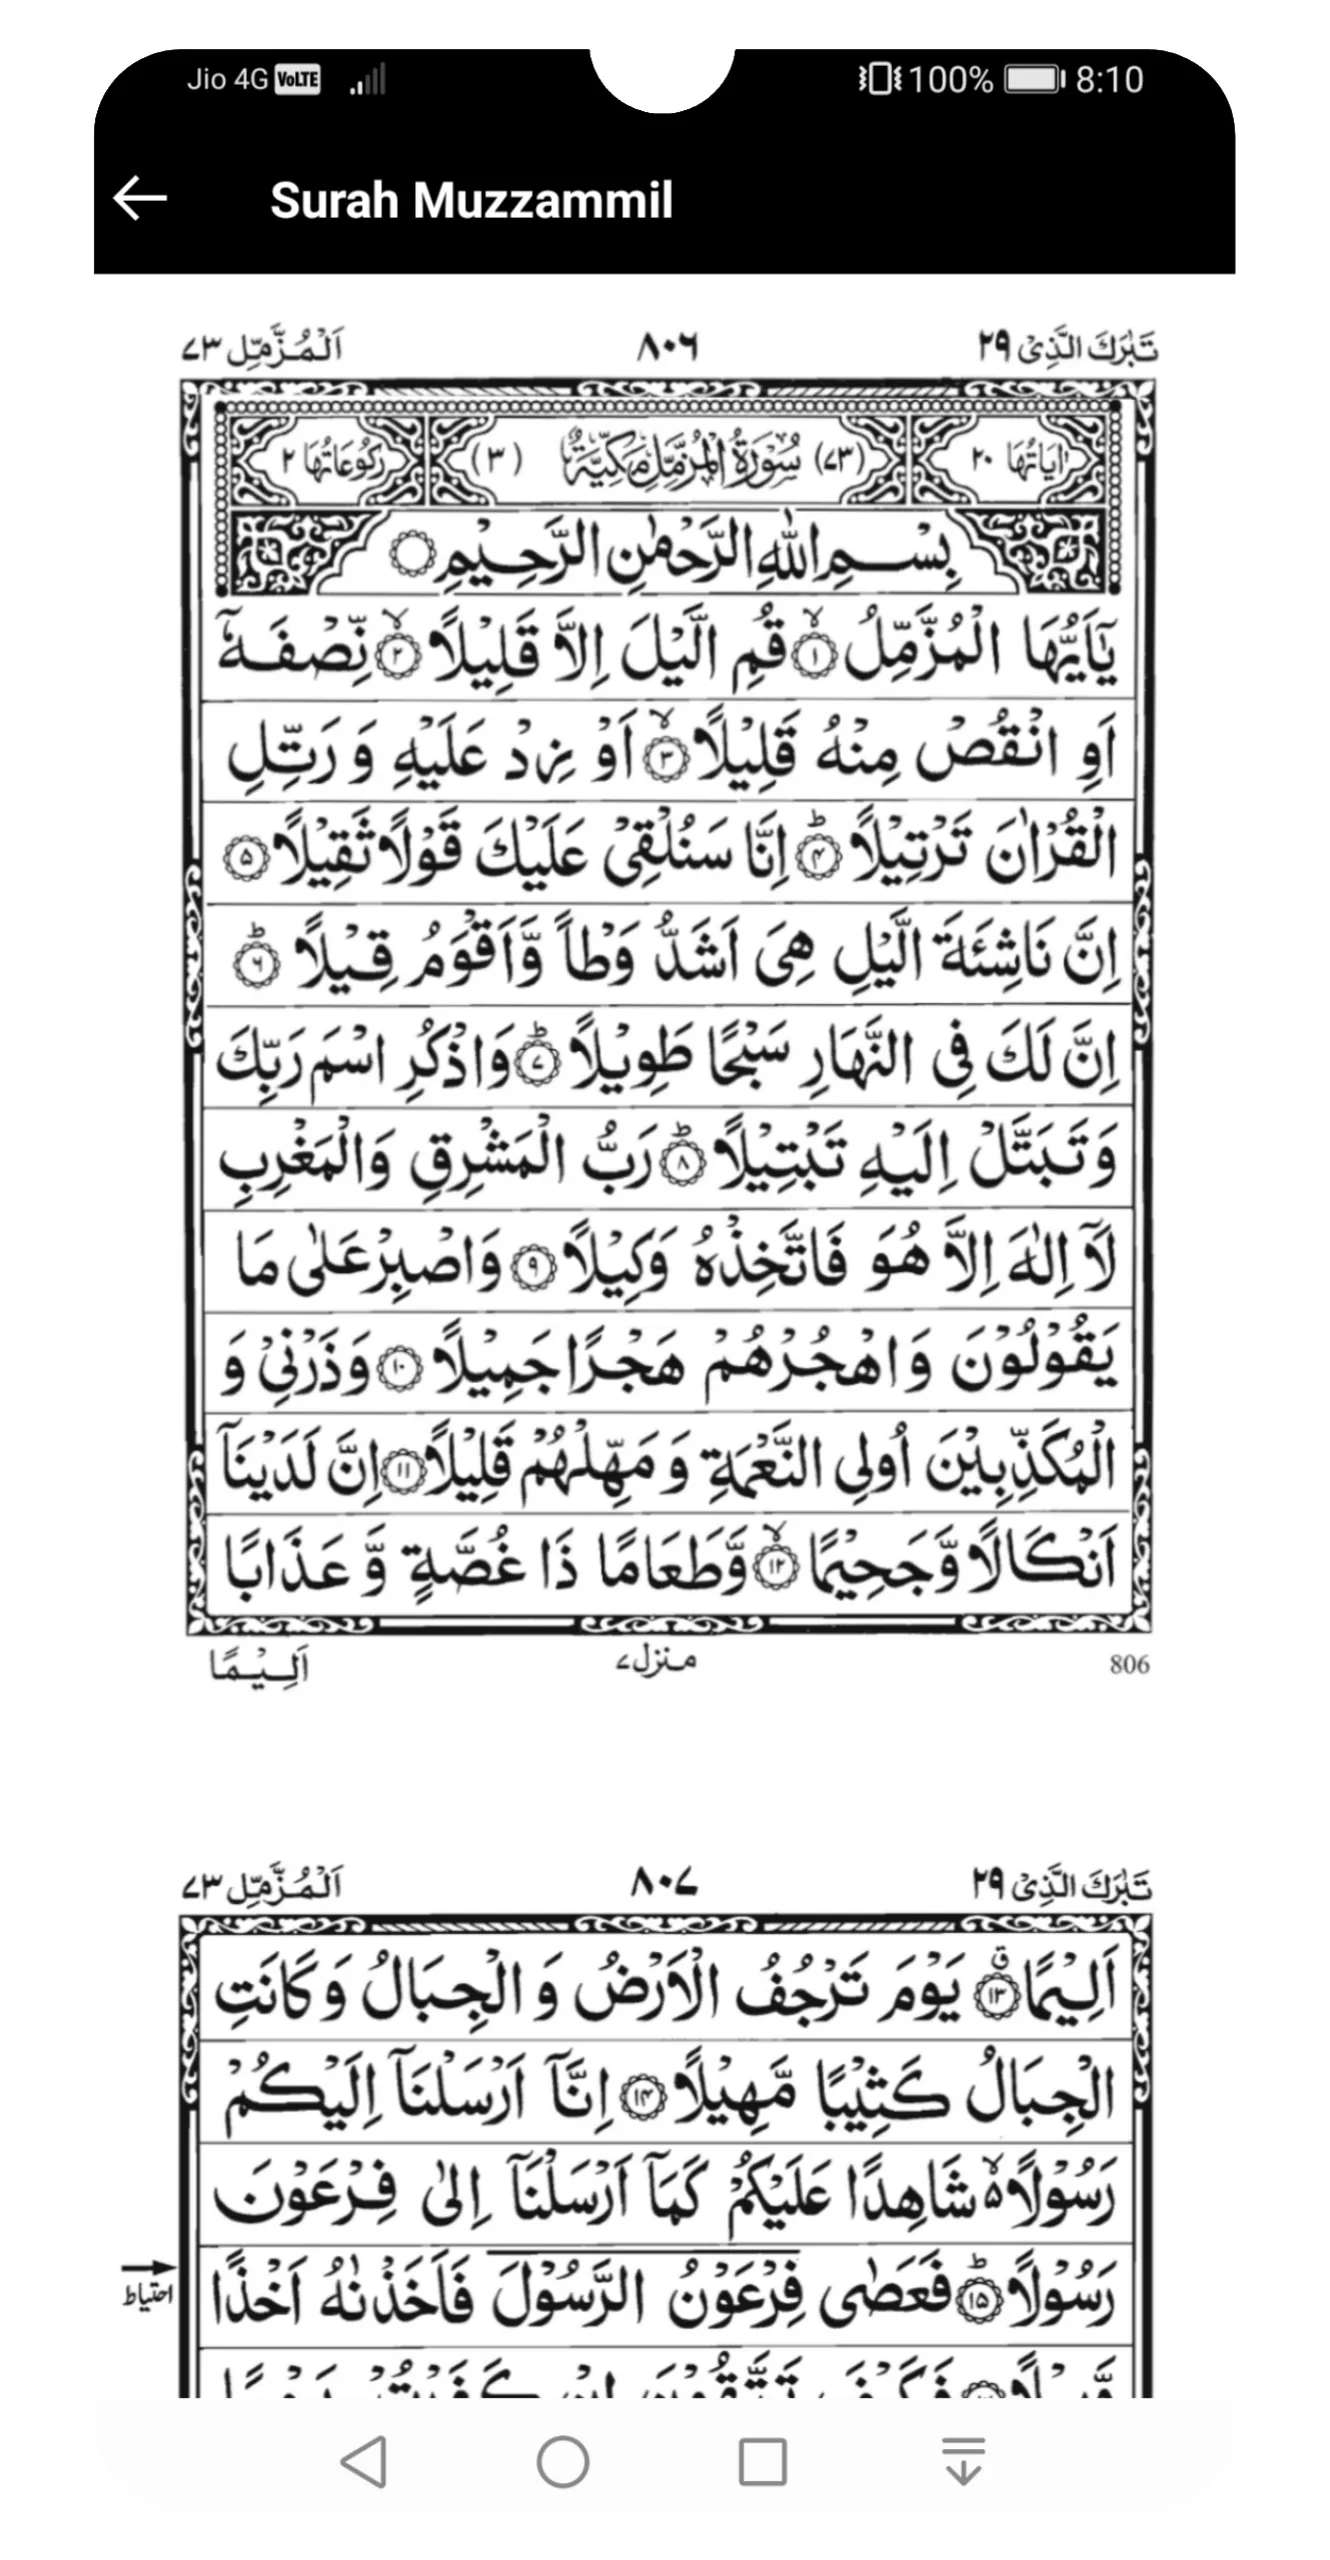 Jio 4G VoLTE 100% 8:10
Surah Muzzammil
تَبٰرَكَ الَّذِىْ ٢٩ ٨٠٦ اَلْمُزَّمِّل ٧٣
اٰيَاتُهَا ٢٠ (٧٣) سُوْرَةُ الْمُزَّمِّلِ مَكِّيَّةٌ (٣) رُكُوْعَاتُهَا ٢
بِسْمِ اللّٰهِ الرَّحْمٰنِ الرَّحِيْمِ
يٰۤاَيُّهَا الْمُزَّمِّلُ ۙ‏﴿۱﴾ قُمِ الَّيْلَ اِلَّا قَلِيْلًا ۙ‏﴿۲﴾ نِّصْفَهٗۤ
اَوِ انْقُصْ مِنْهُ قَلِيْلًا ۙ‏﴿۳﴾ اَوْ زِدْ عَلَيْهِ وَ رَتِّلِ
الْقُرْاٰنَ تَرْتِيْلًا ؕ‏﴿۴﴾ اِنَّا سَنُلْقِىْ عَلَيْكَ قَوْلًا ثَقِيْلًا ﴿۵﴾
اِنَّ نَاشِئَةَ الَّيْلِ هِىَ اَشَدُّ وَطْاً وَّاَقْوَمُ قِيْلًا ؕ‏﴿۶﴾
اِنَّ لَكَ فِى النَّهَارِ سَبْحًا طَوِيْلًا ؕ‏﴿۷﴾ وَاذْكُرِ اسْمَ رَبِّكَ
وَتَبَتَّلْ اِلَيْهِ تَبْتِيْلًا ؕ‏﴿۸﴾ رَبُّ الْمَشْرِقِ وَالْمَغْرِبِ
لَاۤ اِلٰهَ اِلَّا هُوَ فَاتَّخِذْهُ وَكِيْلًا ﴿۹﴾ وَاصْبِرْ عَلٰى مَا
يَقُوْلُوْنَ وَاهْجُرْهُمْ هَجْرًا جَمِيْلًا ﴿۱۰﴾ وَذَرْنِىْ وَ
الْمُكَذِّبِيْنَ اُولِى النَّعْمَةِ وَ مَهِّلْهُمْ قَلِيْلًا ﴿۱۱﴾ اِنَّ لَدَيْنَاۤ
اَنْكَالًا وَّجَحِيْمًا ۙ‏﴿۱۲﴾ وَّطَعَامًا ذَا غُصَّةٍ وَّ عَذَابًا
806 منزل ٧ اَلِيْمًا
تَبٰرَكَ الَّذِىْ ٢٩ ٨٠٧ اَلْمُزَّمِّل ٧٣
اَلِيْمًا ۗ‏﴿۱۳﴾ يَوْمَ تَرْجُفُ الْاَرْضُ وَ الْجِبَالُ وَ كَانَتِ
الْجِبَالُ كَثِيْبًا مَّهِيْلًا ﴿۱۴﴾ اِنَّاۤ اَرْسَلْنَاۤ اِلَيْكُمْ
رَسُوْلًا ۙ۬ شَاهِدًا عَلَيْكُمْ كَمَاۤ اَرْسَلْنَاۤ اِلٰى فِرْعَوْنَ
رَسُوْلًا ؕ‏﴿۱۵﴾ فَعَصٰى فِرْعَوْنُ الرَّسُوْلَ فَاَخَذْنٰهُ اَخْذًا
احتیاط